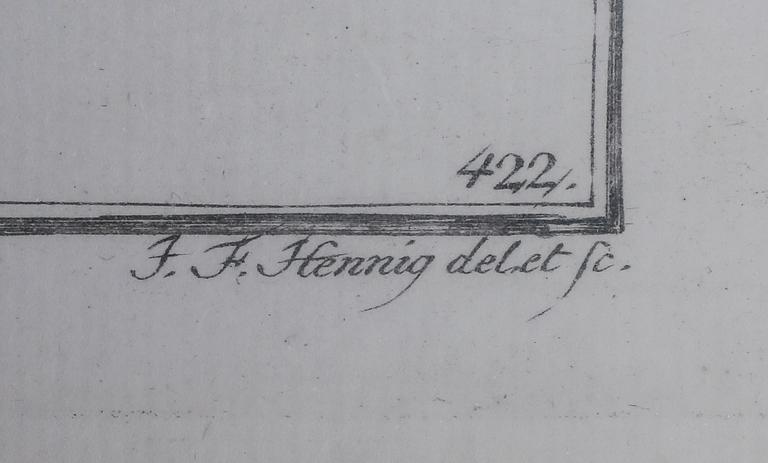 422.
J. F. Hennig del. et ſc.